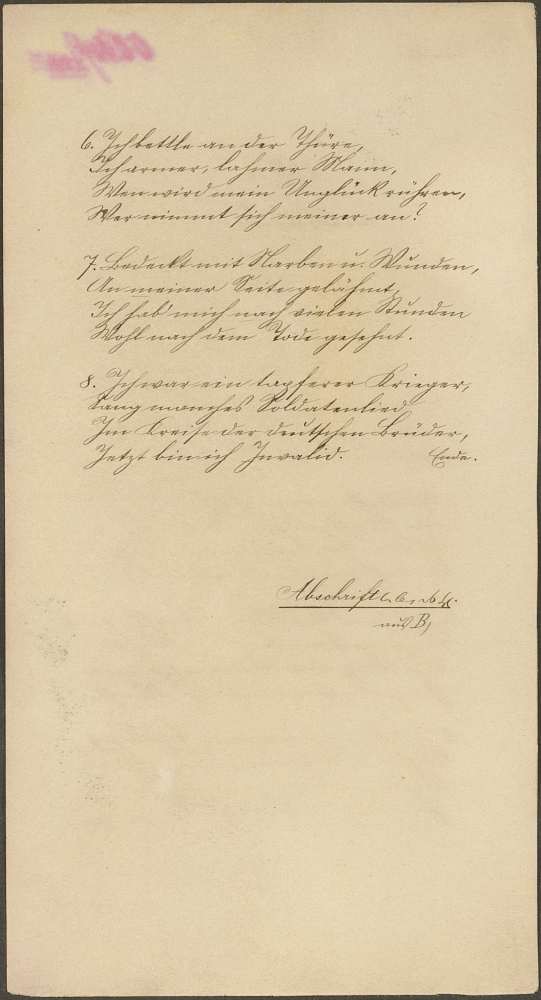 6. Ich bettle an der Thüre,
Ich armer, lahmer Mann,
Wen wird mein Unglück rühren,
Wer nimmt sich meiner an?
7. Bedeckt mit Narben u. Wunden,
An meiner Seite gelähmt,
Ich hab' mich nach vielen Stunden
Wohl nach dem Tode gesehnt.
8. Ich war ein tapferer Krieger,
Sang manches Soldatenlied
Im Kreise der deutschen Brüder,
Jetzt bin ich Invalid. Ende.
Abschrift
aus B,